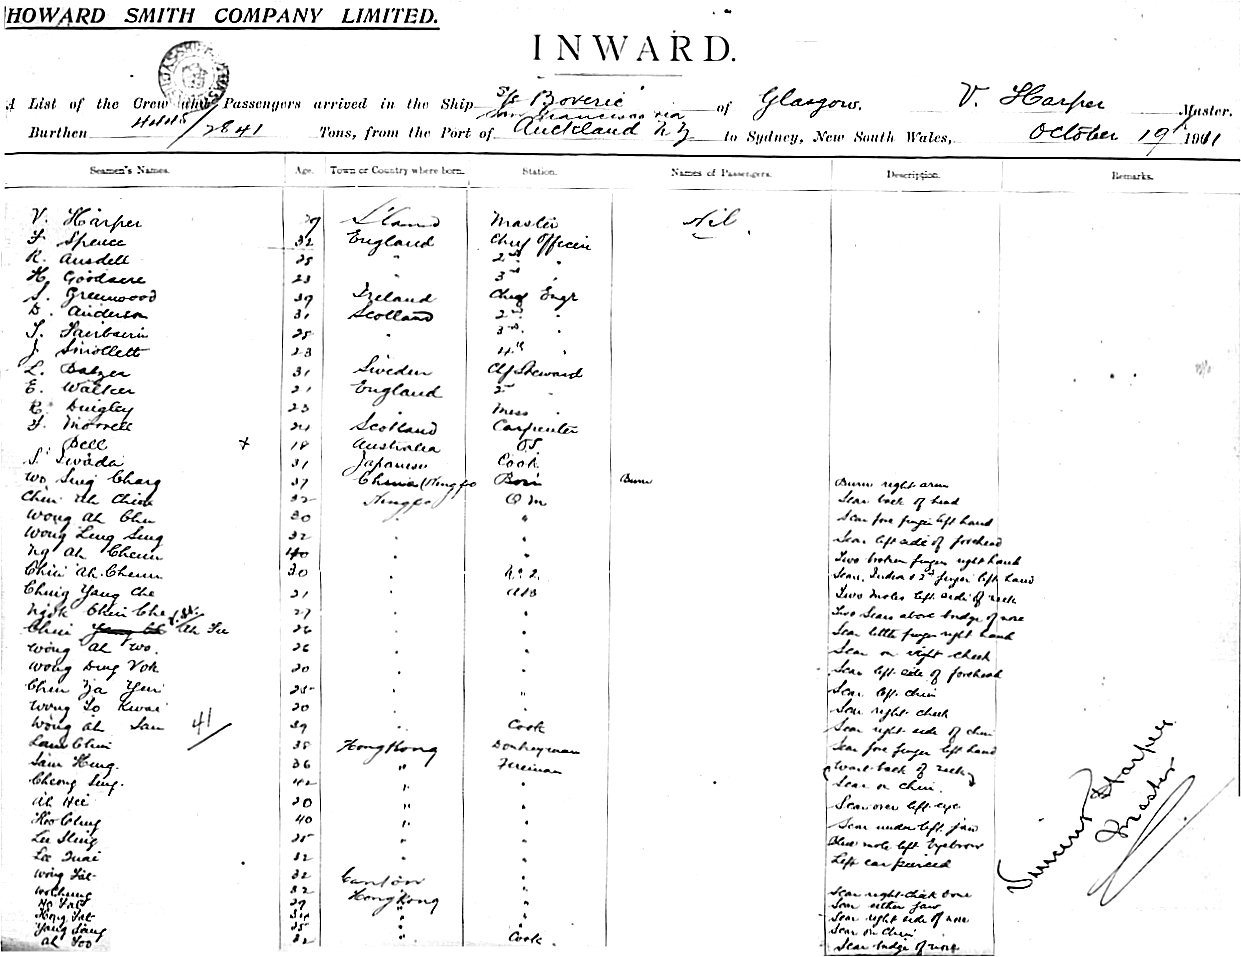 HOWARD SMITH COMPANY LIMITED.
INWARD.
A List of the Crew and Passengers arrived in the Ship S/S Boveric of Glasgow. V. Harper Master.
Burthen 4445/2841 Tons, from the Port of San Francisco via Auckland N Z to Sydney, New South Wales, October 19 1911
Seamen's Names. Age. Town or Country where born. Station. Names of Passengers. Description. Remarks.
V. Harper 39 Master Nil
F Spence 32 England Chief Officer
R. Ansdell 25 " 2nd "
H. Goodacre 23 " 3rd "
S. Greenwood 39 Ireland Chief Engr
D. Anderson 31 Scotland 2nd "
T. Fairbairn 25 " 3rd "
J. Smollett 23 4th "
L. Balzer 31 Sweden Chf Steward
E. Walker 21 England 2 "
R. Dingley 23 Mess "
F. Morrell 24 Scotland Carpenter
Bell x 18 Australia OS
S. Swada 31 Japanese Cook
Wo Sing Chang 37 China (Ningpo Bosn Burn Burn right arm
Chin Ah Chin 32 Ningpo Q M Scar back of head
Wong Ah Chu 30 " " Scar fore finger left hand
Wong Ling Sing 32 " " Scar left side of forehead
Ng Ah Cheun 40 " " Two broken finger right hand
Chin Ah Cheun 30 " Scar, Index & 2nd finger left hand
Ching Yang Che 21 " AB Two moles left side of neck
Ngok Chin Che 27 " " Two Scars above bridge of nose
Chin Ah Fu 26 " " Scar little finger right hand
Wong Ah Wo. 26 " " Scar on right cheek
Wong Ding Yok 20 " " Scar left side of forehead
Chen Za Yin 25 " " Scar left chin
Wong Lo Kwai 20 " " Scar right cheek
Wong Ah San 41 39 " Cook Scar right side of chin
Lam Chin 38 HongKong Donkeyman Scar fore finger left hand
Sam Hing. 36 " Fireman Wart back of neck
Cheong Sing. 42 " " Scar on chin.
Ah Hee 20 " " Scar over left eye
Koo Ching 40 " " Scar under left jaw
Lee Sling 25 " " Blue mole left Eyebrow
Lee Quai 32 " " Left ear pierced
Wong Fat 32 Canton "
Wo Cheung 32 HongKong " Scar right cheek bone
Ho Fat 29 " " Scar either jaw
Hong Fat 34 " " Scar right side of nose
Yang Song 25 " " Scar on Chin
Ah Foo 32 " Cook Scar bridge of nose
Vincent Harper
Master